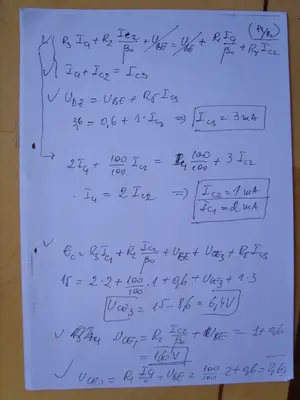 (A/B2)
R3 IC1 + R2 IC2/β0 + UBE = UBE + R1 IC1/β0 + R4 IC2
IC1 + IC2 = IC3
UDZ = UBE + R5 IC3
3,6 = 0,6 + 1·IC3 => IC3 = 3 mA
2IC1 + 100/100 IC2 = IC1 100/100 + 3 IC2
IC1 = 2 IC2 => IC2 = 1 mA
IC1 = 2 mA
EC = R3 IC1 + R2 IC2/β0 + UBE + UCE3 + R5 IC3
15 = 2·2 + 100/100·1 + 0,6 + UCE3 + 1·3
UCE3 = 15 - 8,6 = 6,4V
UCE1 = R2 IC2/β0 + UBE = 1 + 0,6
= 1,6 V
UCE2 = R1 IC1/β0 + UBE = 100/100·2 + 0,6 = 2,6V